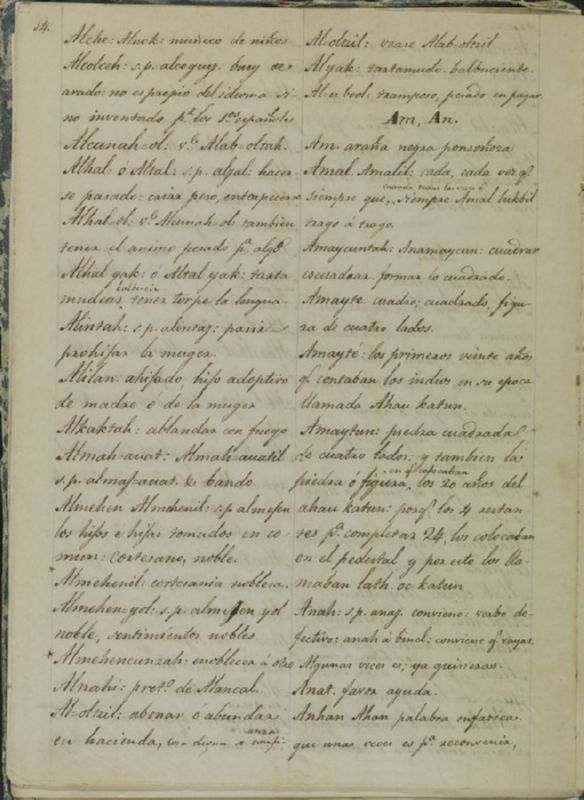 14.
Alche: Aluok: muñeco de niños
Alcolceh: s.p. alcoguey: buey de
arado: no es propio del idioma si-
no inventado pᵃ. los Sᵉˢ españoles
Alcunah-ol: vᵉ. Alab-oltah.
Alhal ó Altal: s.p. algal: hacer-
se pesado: caiar peso, entorpecerse
Alhal-ol: vᵉ. Alcunah-ol tambien
tener el animo pesado pᵃ. algᵒ
Alhal yak: ó Altal yak: tarta
balbucir
mudear, tener torpe la lengua
Alintah: s.p. alintaj: parir
prohijar la muger.
Alilan. ahijado, hijo adoptivo
de madre ó de la muger
Alkaktah: ablandar con fuego
Almah-auat: Almah-auatil
s.p. almaj-auat. & bando.
Almehen Almehenil: s.p. almejen
los hijos e hijas tomados en co-
mun: cortesano, noble.
* Almehenil: cortesania nobleza.
Almehen-yol: s.p. almejen yol
noble, sentimientos nobles
* Almehencunzah: enoblecer á otro
Alnahi: pretᵒ. de Alancal.
Al-olzil: abonar ó abundar
en hacienda,
Al-olzil: vease Alab-olzil
Alyak: tartamudo. balbuciente
Al-u bool: tramposo, pesado en pagar
Am, An.
Am. araña negra ponsoñoza
Amal Amalil: cada, cada vez qᵉ
siempre que, siempre Amal lukbil
trago á trago.
Amaycuntah: Anamaycun: cuadrar
escuadrar. formar lo cuadrado.
Amayte cuadro; cuadrado, figu-
ra de cuatro lados.
Amayté: los primeros veinte años
qᵉ contaban los indios en su epoca
llamada Ahau katun.
Amaytun: piedra cuadrada
de cuatro lados: y tambien la
en qᵉ colocaban
piedra ó figura, los 20 años del
ahau katun: porqᵉ los 4 restan
tes pᵃ. completar 24, los colocaban
en el pedestal y por esto los lla-
maban lath. oc katun
Anah: s.p. anaj. conviene: verbo de-
fectivo: anah á binel: conviene qᵉ vayas.
Algunas vices es; ya quisieras.
Anat. favor ayuda.
Anhan Ahan palabra
que unas veces es pᵃ. reconvenir,